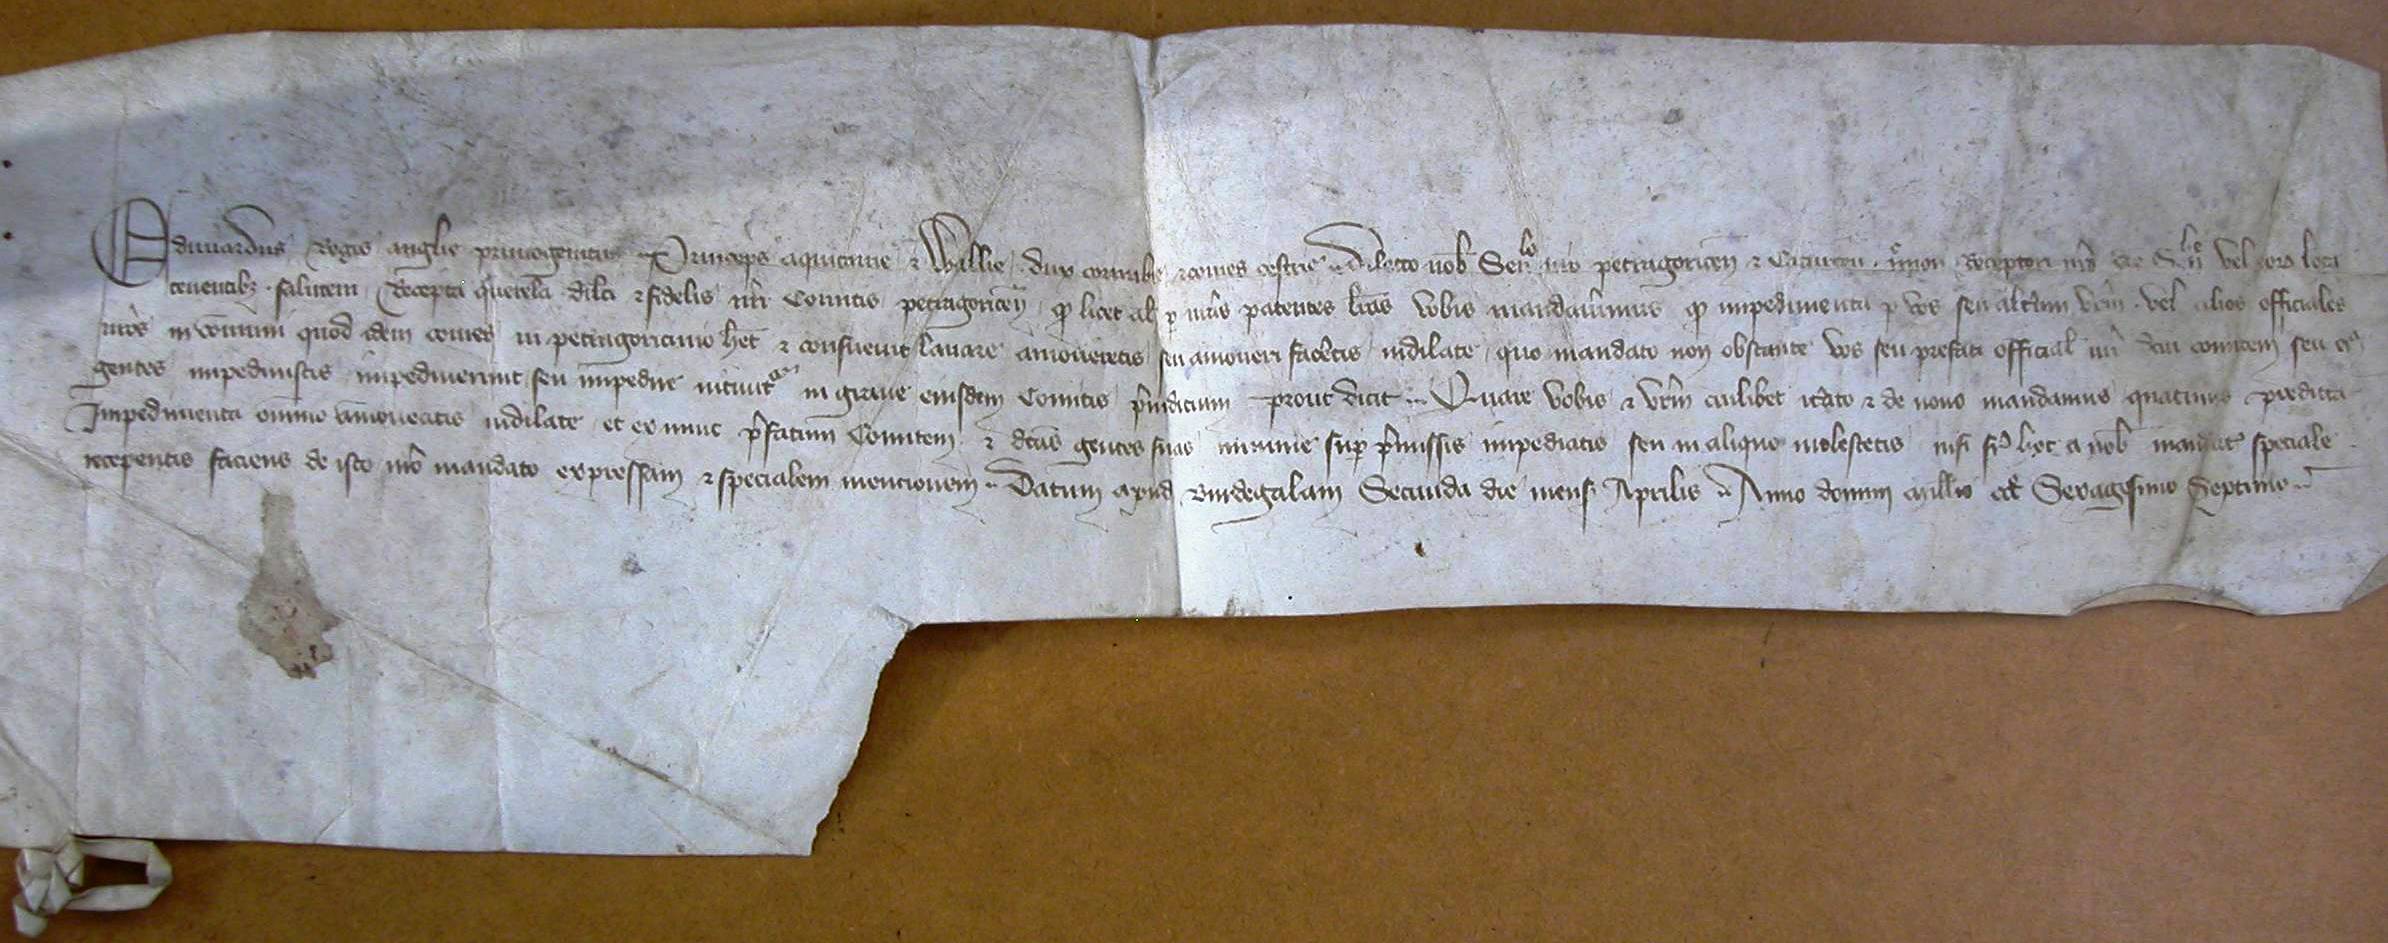 Edwardus Regis anglie primogenitus Princeps aquitanie & Wallie dux cornubie & comes cestrie Dilecto nob Senllo nro petragoricen & Caturcen Receptori nro de vel eorum loca
tenentibz salutem Recepta querela dilci & fidelis nri Comitis petragoricen qd licet al p nras patentes lras vobis mandaverimus qd impedimenta p vos seu altum vrm vel alios officiales
nros in comuni quod idem comes in petragoricinio het & consuevit lavare amoveretis seu amoveri faceretis indilate quo mandato non obstante vos seu prefati official nri dcm comitem seu
gentes impedivistis impediverunt seu impedire in grave eiusdem Comitis piudicium prout dicit Quare vobis & vrm cuilibet itato & de novo mandamus quatinus predicta
Impedimenta omnino amoveatis indilate et ex nunc pfatum Comitem & dcas gentes suas minime sup pmissis impediatis seu in aliquo molestetis nisi sup hoc a nob mandatum speciale
receperitis faciens de isto nro mandato expressam & specialem mencionem Datum apud Burdegalam Secunda die mens Aprilis Anno domini millio ccc Sexagesimo Septimo